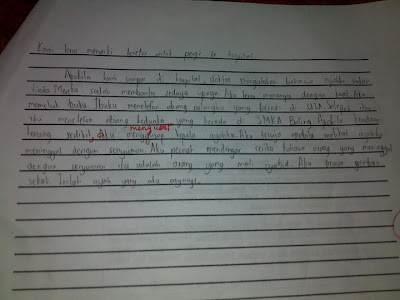 Kami terus menaiki kereta untuk pergi ke hospital.
Apabila kami sampai di hospital, doktor mengatakan bahawa ayahku sudah
tiada. Mereka sudah membantu sedaya upaya. Aku terus menangis dengan kuat. Aku
memeluk ibuku. Ibuku menelefon abang sulungku yang berada di UIA. Selepas itu,
ibu menelefon abang keduaku yang berada di SMKA Baling. Apabila keadaan
tenang sedikit, aku mengucup kepala ayahku. Aku terkejut apabila melihat ayahku
menguat
meninggal dengan senyuman. Aku pernah mendengar cerita bahawa orang yang meninggal
dengan senyuman itu adalah orang yang mati syahid. Aku terasa gembira
sekali. Inilah ayah yang aku sayangi.